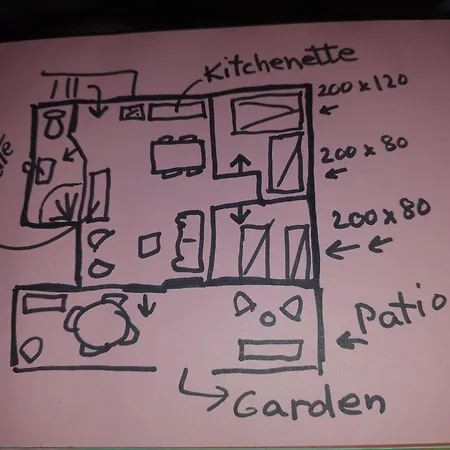 Kitchenette
200 x 120
200 x 80
200 x 80
Patio
Garden